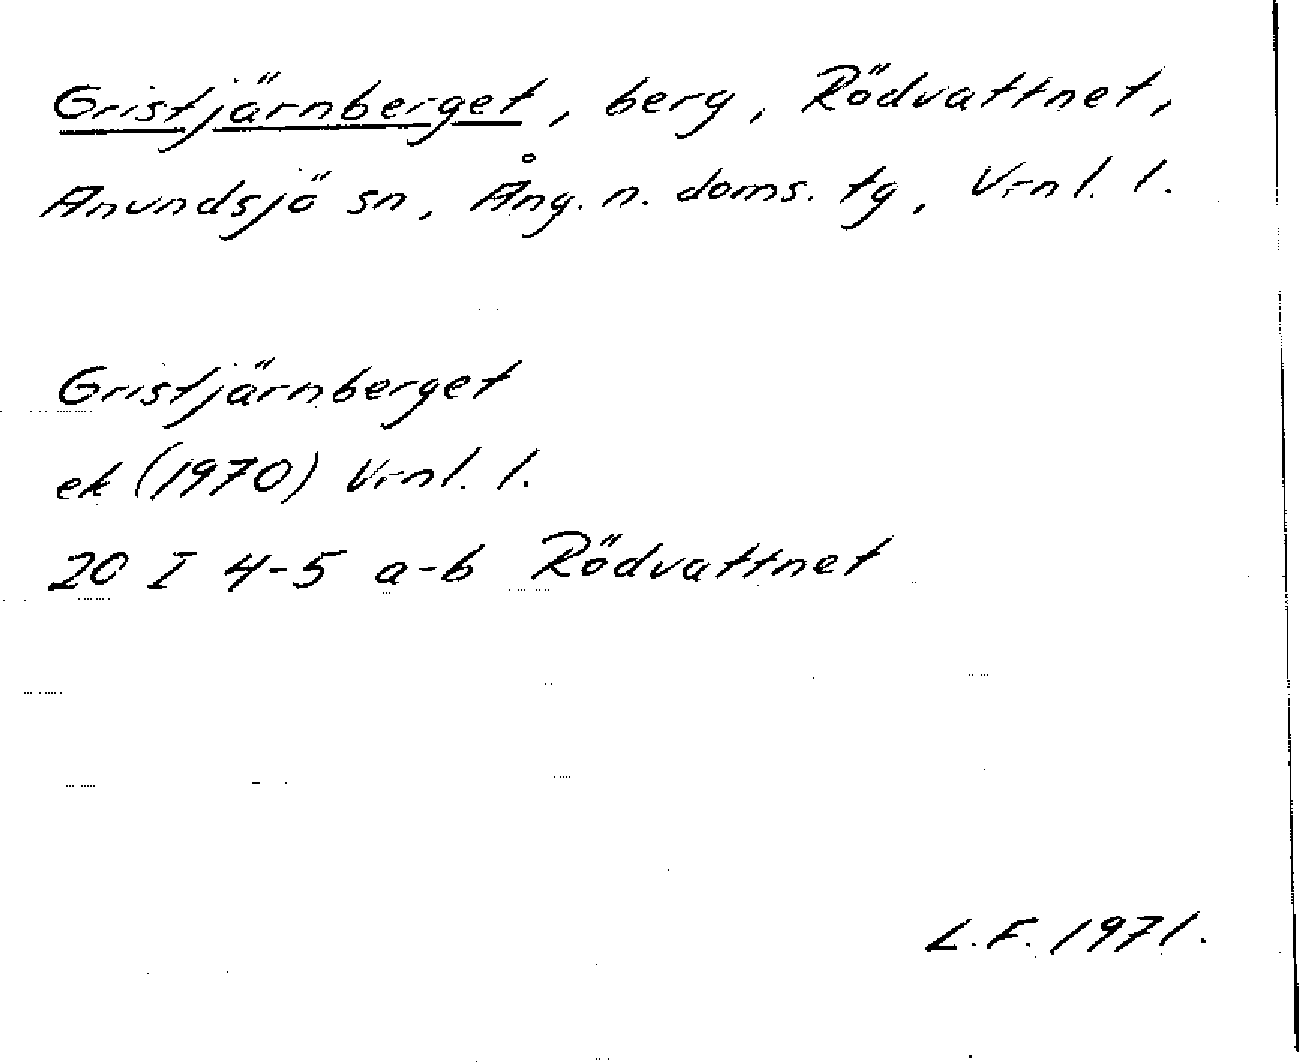 Gristjärnberget, berg, Rödvattnet,
Anundsjö sn, Ång. n. doms. tg, Vrnl. l.
Gristjärnberget
ek (1970) Vrnl. l.
20 I 4-5 a-b Rödvattnet
L.F. 1971.